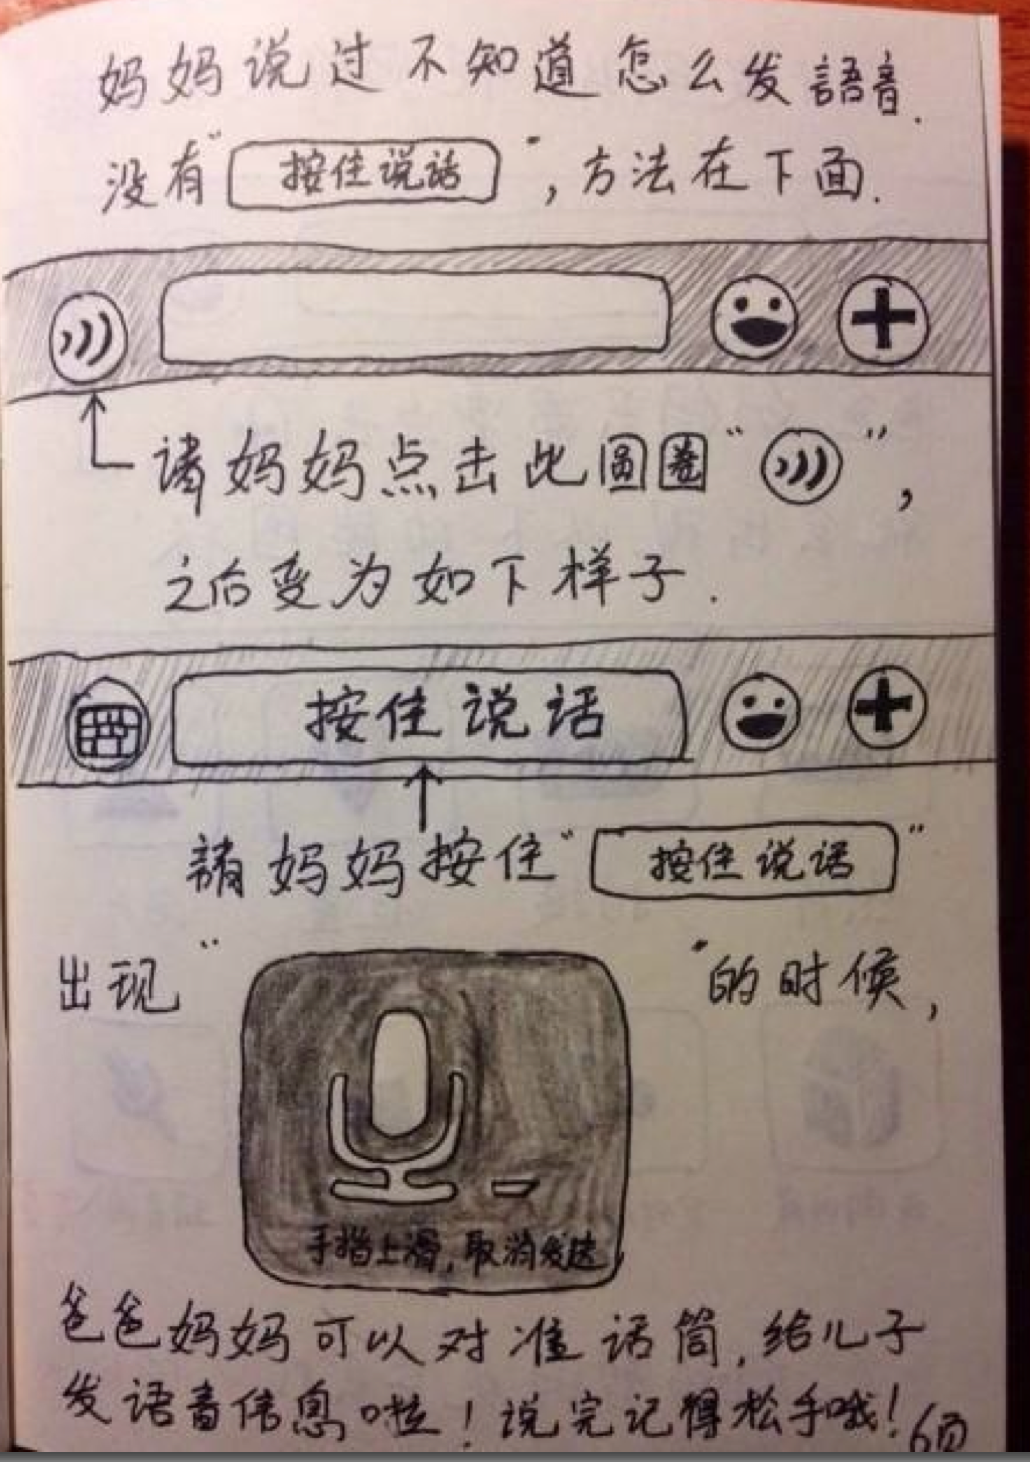 妈妈说过不知道怎么发語音.
没有"按住说话",方法在下面.
请妈妈点击此圆圈"",
之后变为如下样子.
按住说话
請妈妈按住"按住说话"
出现""的时候,
手指上滑,取消发送
爸爸妈妈可以对准话筒,给儿子
发语音信息啦!说完记得松手哦!6页